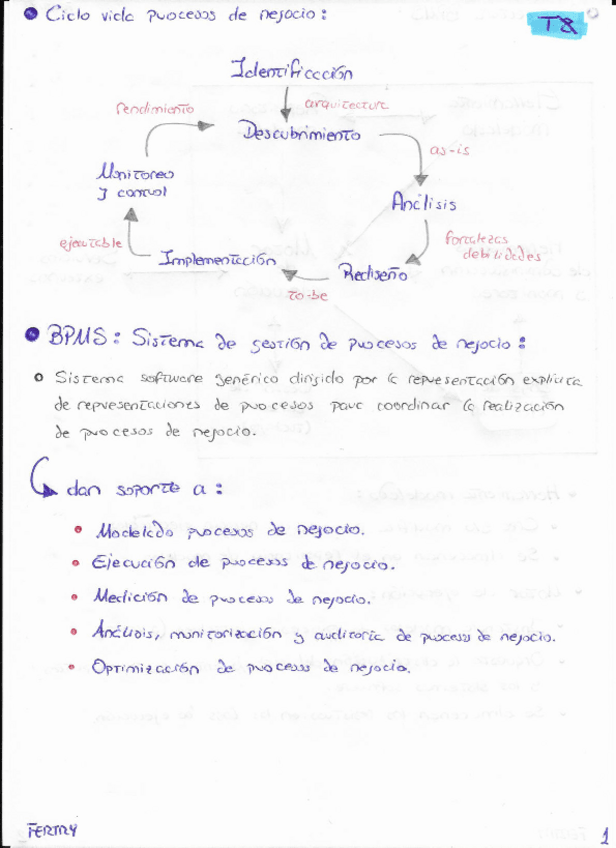 Ciclo vida procesos de negocio:
T8
Identificación
rendimiento
arquitectura
Descubrimiento
as-is
Monitoreo
y control
Análisis
ejecutable
fortalezas
debilidades
Implementación
Rediseño
to-be
BPMS: Sistema de gestión de procesos de negocio:
Sistema software genérico dirigido por la representación explícita
de representaciones de procesos para coordinar la realización
de procesos de negocio.
dan soporte a:
Modelado procesos de negocio.
Ejecución de procesos de negocio.
Medición de procesos de negocio.
Análisis, monitorización y auditoría de procesos de negocio.
Optimización de procesos de negocio.
FERTRY
1